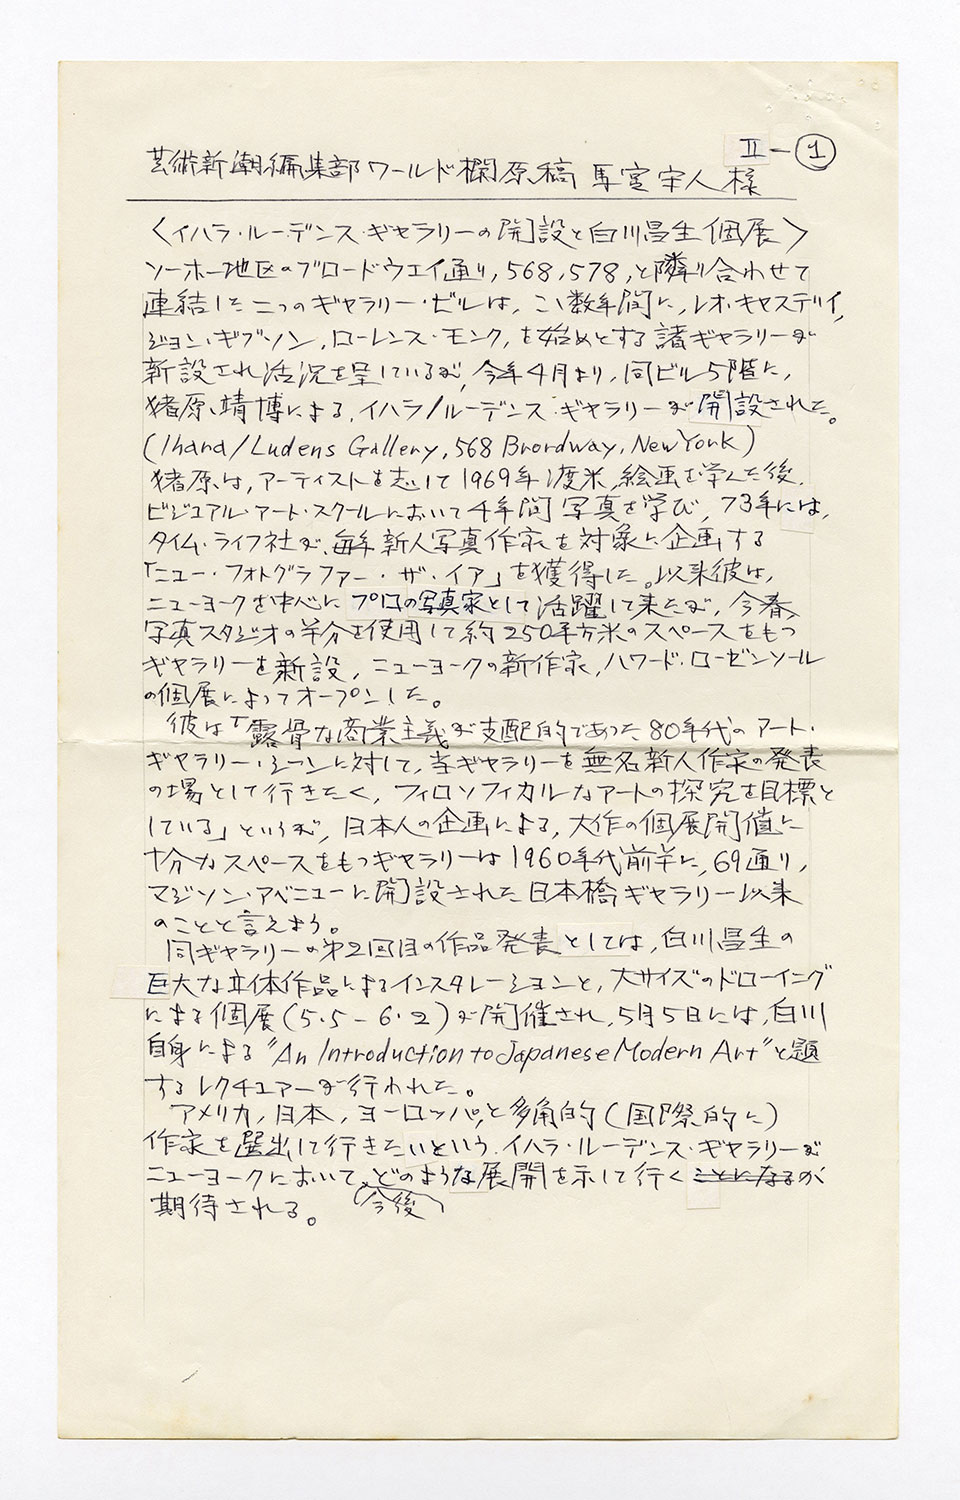 II－①
芸術新潮編集部ワールド欄原稿 馬宮宇人様
〈イハラ・ルーデンス・ギャラリーの開設と白川昌生個展〉
ソーホー地区のブロードウェイ通り，568，578，と隣り合わせて
連結した二つのギャラリー・ビルは，こゝ数年間に，レオ・キャステリィ，
ジョン・ギブソン，ローレンス・モンク，を始めとする諸ギャラリーが
新設され活況を呈しているが，今年4月より，同ビル5階に，
猪原靖博による，イハラ／ルーデンス・ギャラリーが開設された。
(Ihara/Ludens Gallery, 568 Brordway, New York)
猪原は，アーティストを志して1969年渡米，絵画を学んだ後，
ビジュアル・アート・スクールにおいて4年間写真を学び，73年には，
タイム・ライフ社が，毎年新人写真作家を対象に企画する
「ニュー・フォトグラファー・ザ・イア」を獲得した。以来彼は，
ニューヨークを中心にプロの写真家として活躍して来たが，今春，
写真スタジオの半分を使用して約250平方米のスペースをもつ
ギャラリーを新設，ニューヨークの新作家，ハワード・ローゼンソール
の個展によってオープンした。
彼は「露骨な商業主義が支配的であった80年代のアート・
ギャラリー・シーンに対して，当ギャラリーを無名新人作家の発表
の場として行きたく，フィロソフィカルなアートの探究を目標と
している」というが，日本人の企画による，大作の個展開催に
十分なスペースをもつギャラリーは1960年代前半に，69通り，
マジソン・アベニューに開設された日本橋ギャラリー以来
のことと言えよう。
同ギャラリーの第2回目の作品発表としては，白川昌生の
巨大な立体作品によるインスタレーションと，大サイズのドローイング
による個展(5・5－6・2)が開催され，5月5日には，白川
自身による“An Introduction to Japanese Modern Art”と題
するレクチュアーが行われた。
アメリカ，日本，ヨーロッパ，と多角的(国際的に)
作家を選出して行きたいという，イハラ・ルーデンス・ギャラリーが
ニューヨークにおいて，どのような展開を示して行くことになるが
期待される。 今後